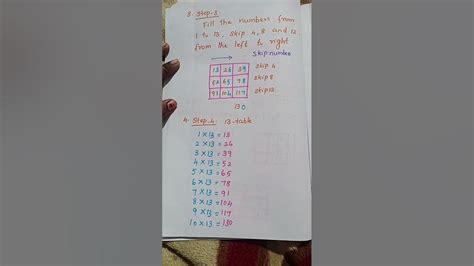 3. Step-3:
Fill the numbers from
1 to 13, skip 4, 8 and 12
from the left to right
skip number
13 26 39 skip 4
52 65 78 skip 8
91 104 117 skip 12
130
4. Step-4: 13-table
1 x 13 = 13
2 x 13 = 26
3 x 13 = 39
4 x 13 = 52
5 x 13 = 65
6 x 13 = 78
7 x 13 = 91
8 x 13 = 104
9 x 13 = 117
10 x 13 = 130